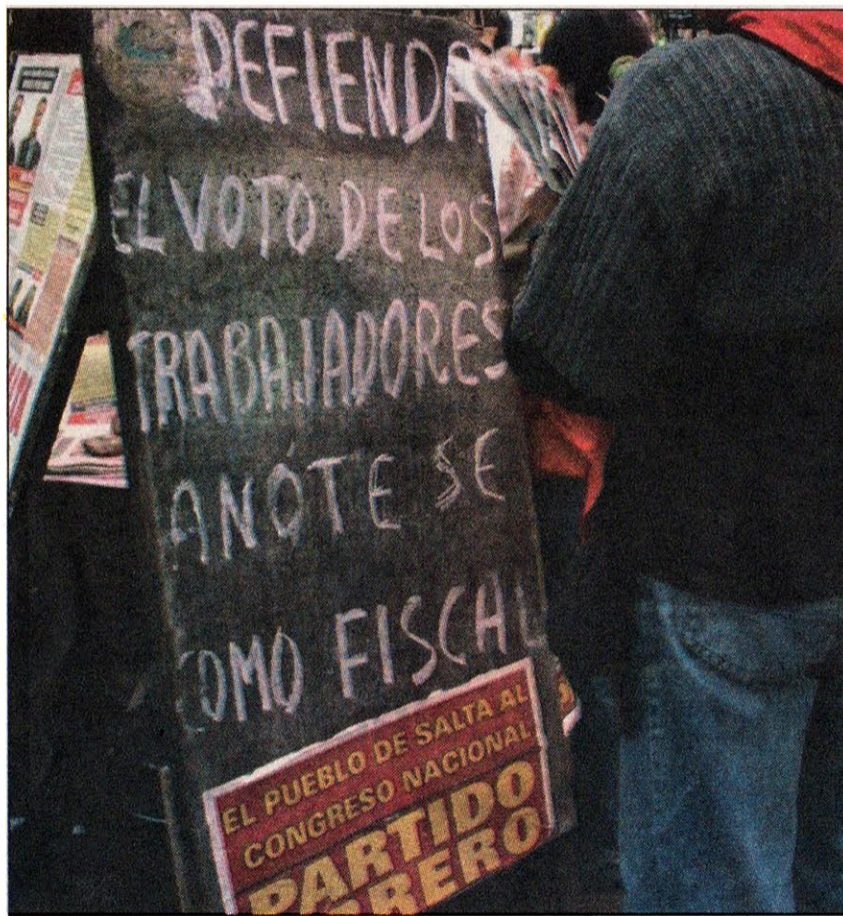 DEFIENDA
EL VOTO DE LOS
TRABAJADORES
ANÓTE SE
COMO FISCAL
EL PUEBLO DE SALTA AL
CONGRESO NACIONAL
PARTIDO
OBRERO